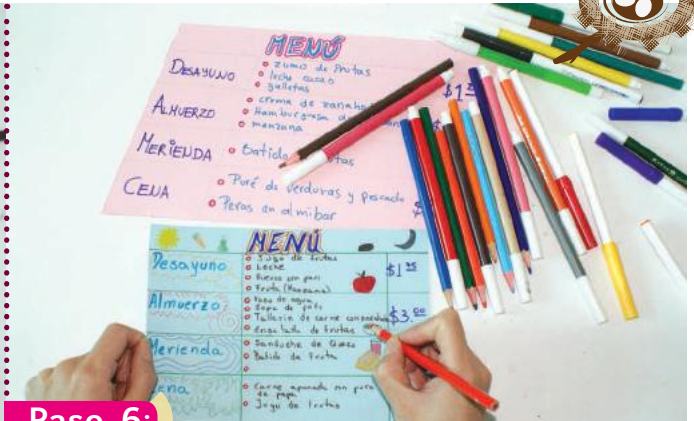 MENÚ
DESAYUNO
zumo de frutas
leche cacao
galletas
ALMUERZO
crema de
Hamburguesa
manzana
MERIENDA
Batido
CENA
Puré de verduras y pescado
Peras en almibar
MENÚ
Desayuno
Jugo de frutas
Leche
Fruta (Manzana)
Almuerzo
Vaso de agua
Sopa de
Tallarin de carne con
ensalada de frutas
$3.00
Merienda
Sanduche de Queso
Batido de fruta
Carne apanada con pure
de papa
Jugo de frutas
Paso 6: